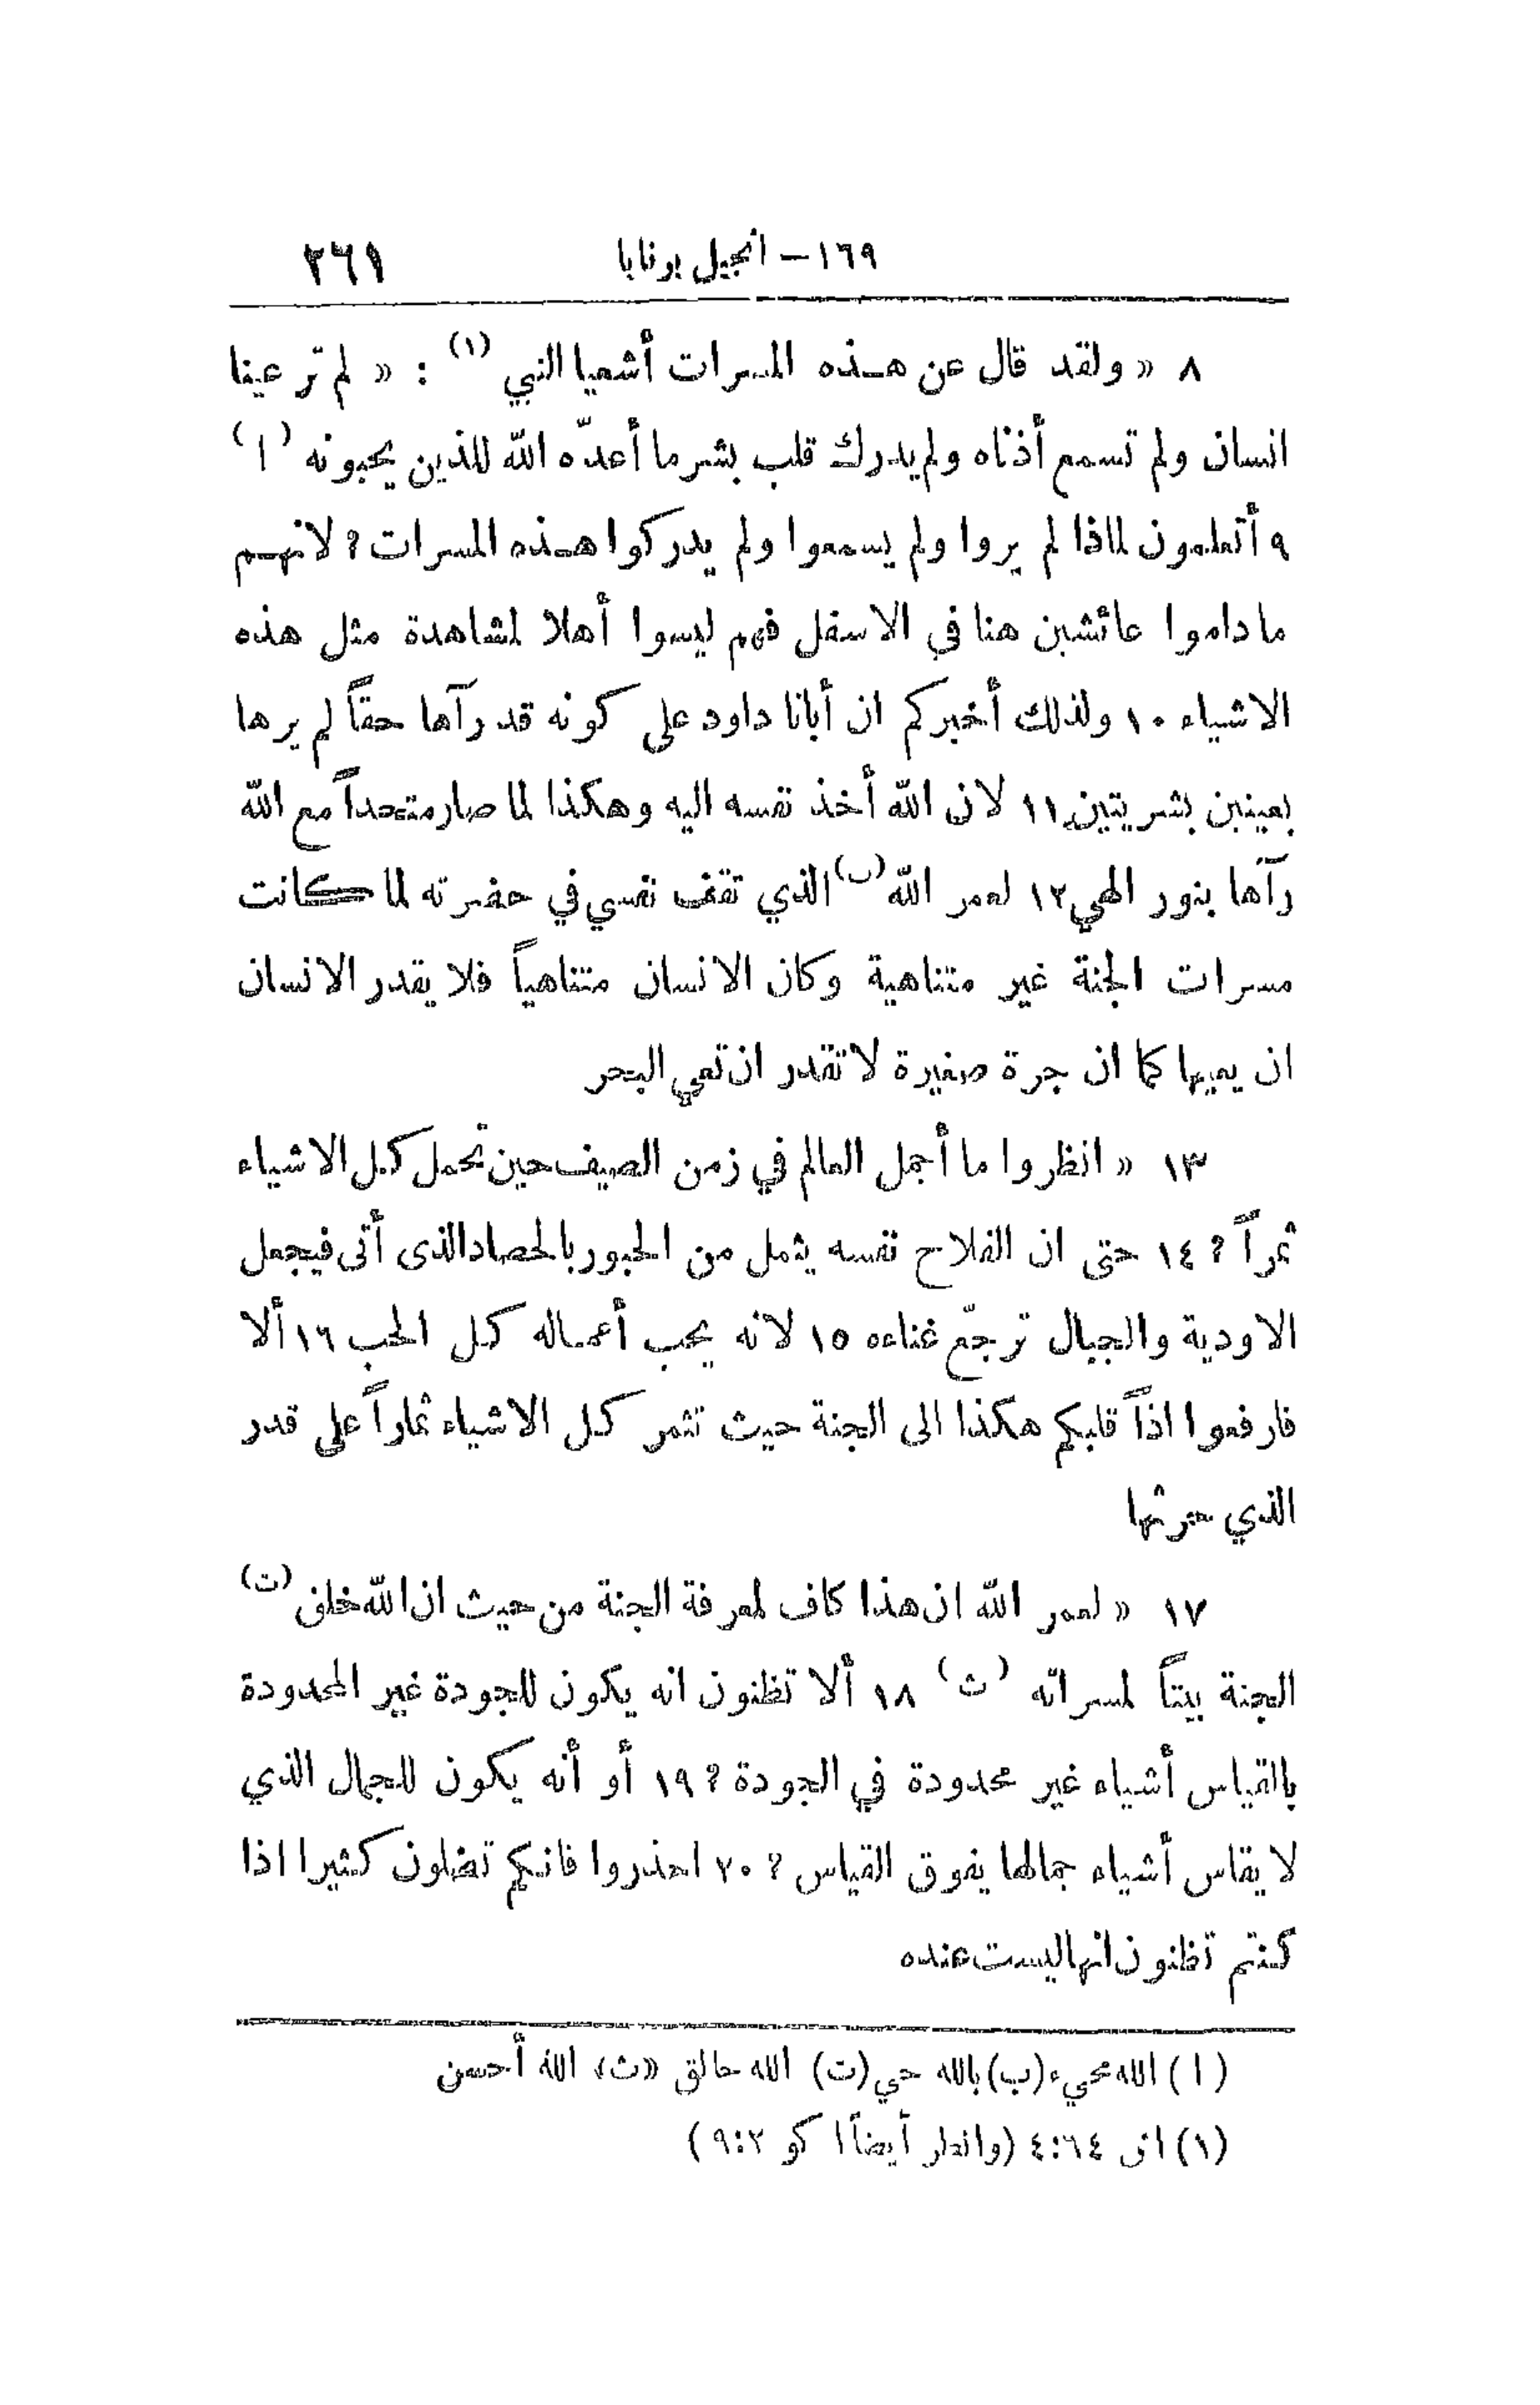 ١٦٩ – انجيل برنابا ٢٦١
٨ « ولقد قال عن هـذه المسرات أشعيا النبي (١) : « لم ترَ عينا
انسان ولم تسمع أذناه ولم يدرك قلب بشر ما أعدّه الله للذين يحبونه (ا)
٩ أتعلمون لماذا لم يروا ولم يسمعوا ولم يدركوا هـذه المسرات ؟ لانهـم
ما داموا عائشين هنا في الاسفل فهم ليسوا أهلا لمشاهدة مثل هذه
الاشياء ١٠ ولذلك أخبركم ان أبانا داود على كونه قد رآها حقاً لم يرها
بعينين بشريتين ١١ لان الله أخذ نفسه اليه وهكذا لما صار متحداً مع الله
رآها بنور الهي ١٢ لعمر الله (ب) الذي تقف نفسي في حضرته لما كانت
مسرات الجنة غير متناهية وكان الانسان متناهياً فلا يقدر الانسان
ان يعيها كما ان جرة صغيرة لا تقدر ان تعي البحر
١٣ « انظروا ما أجمل العالم في زمن الصيف حين تحمل كل الاشياء
ثمراً ؟ ١٤ حتى ان الفلاح نفسه يثمل من الحبور بالحصاد الذى أتى فيجعل
الاودية والجبال ترجّع غناءه ١٥ لانه يحب أعماله كل الحب ١٦ ألا
فارفعوا اذاً قلبكم هكذا الى الجنة حيث تثمر كل الاشياء ثماراً على قدر
الذي حرثها
١٧ « لعمر الله ان هذا كاف لمعرفة الجنة من حيث ان الله خلق (ت)
الجنة بيتاً لمسراته (ث) ١٨ ألا تظنون انه يكون للجودة غير المحدودة
بالقياس أشياء غير محدودة في الجودة ؟ ١٩ أو أنه يكون للجمال الذي
لا يقاس أشياء جمالها يفوق القياس ؟ ٢٠ احذروا فانكم تضلون كثيرا اذا
كنتم تظنون انها ليست عنده
(ا) الله محيي (ب) بالله حي (ت) الله خالق «ث» الله أحسن
(١) اش ٦٤:٤ (وانظر أيضاً ١ كو ٢:٩)